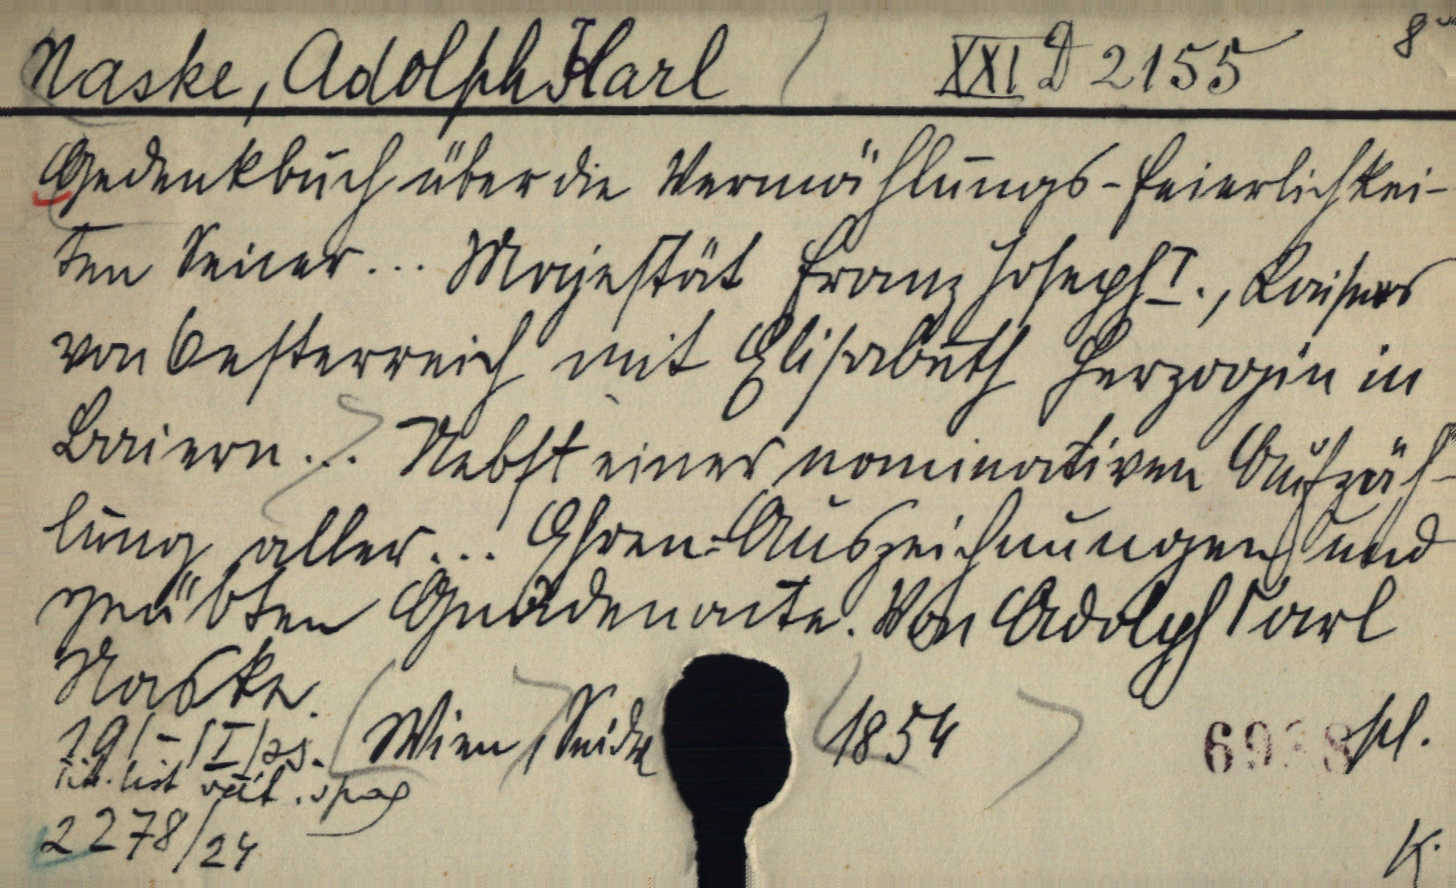 Naske, Adolph Karl XXI D 2155 8°
Gedenkbuch über die Vermählungs-Feierlichkei-
ten Seiner... Majestät Franz Joseph I., Kaisers
von Oesterreich mit Elisabeth Herzogin in
Baiern... Nebst einer nominativen Aufzäh-
lung aller... Ehren-Auszeichnungen und
geübten Gnadenacte. Von Adolph Carl
Naske.
191-[I] s. Wien, Seidel 1854 pl.
tit. list
2278/24 K.